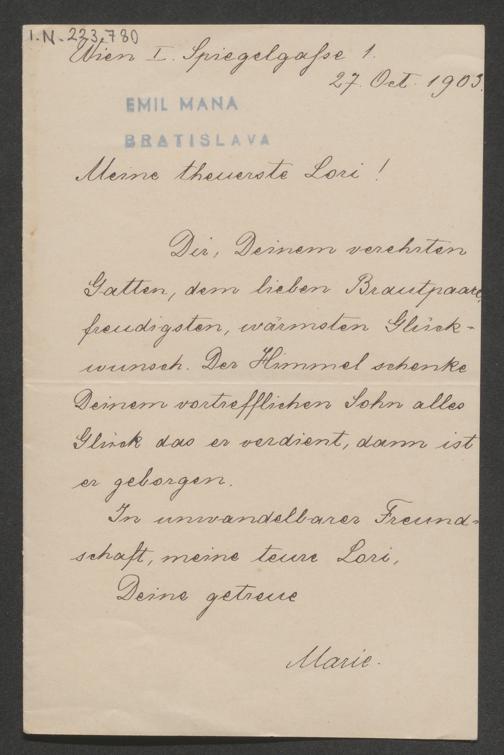 I.N. 223.780
Wien I. Spiegelgaße 1.
27. Oct. 1903.
EMIL MANA
BRATISLAVA
Meine theuerste Lori!
Dir, Deinem verehrten
Gatten, dem lieben Brautpaare,
freudigsten, wärmsten Glück-
wunsch. Der Himmel schenke
Deinem vortrefflichen Sohn alles
Glück das er verdient, dann ist
er geborgen.
In unwandelbarer Freund-
schaft, meine teure Lori,
Deine getreue
Marie.